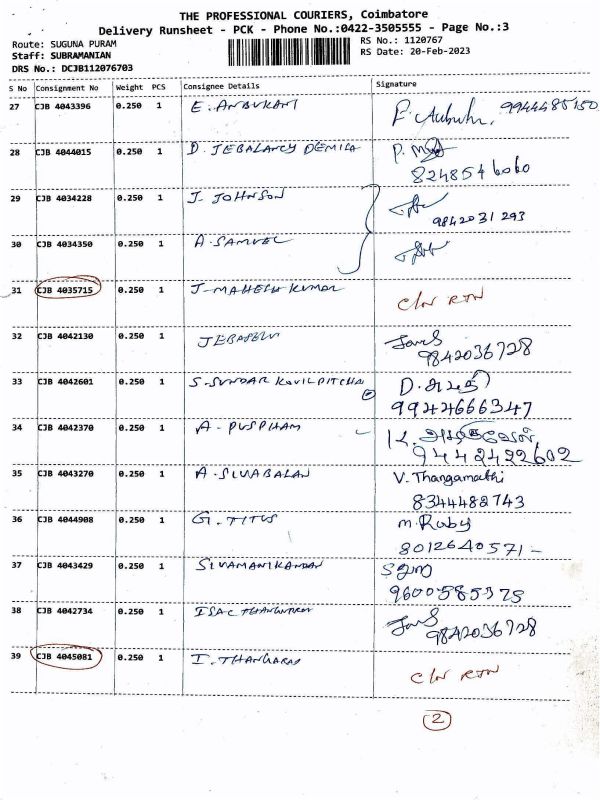 THE PROFESSIONAL COURIERS, Coimbatore
Delivery Runsheet - PCK - Phone No.:0422-3505555 - Page No.:3
Route: SUGUNA PURAM
Staff: SUBRAMANIAN
DRS No.: DCJB112076703
RS No.: 1120767
RS Date: 20-Feb-2023
S No Consignment No Weight PCS Consignee Details Signature
27 CJB 4043396 0.250 1 E. ANBUKANI 9944485150
28 CJB 4044015 0.250 1 D. JEBALANCY DEMILA
8248546060
29 CJB 4034228 0.250 1 J. JOHNSON
9842031293
30 CJB 4034350 0.250 1 A. SAMUEL
31 CJB 4035715 0.250 1 J-MAHESH KUMAR C/N RTN
32 CJB 4042130 0.250 1
9842036728
33 CJB 4042601 0.250 1 S. SUNDAR KOVILPITCHAI
9944666347
34 CJB 4042370 0.250 1 A. PUSPHAM
9442422602
35 CJB 4043270 0.250 1 A. SIVABALAN V. Thangamathi
8344482743
36 CJB 4044908 0.250 1 G. TITUS M. Ruby
8012640571 -
37 CJB 4043429 0.250 1 SIVAMANIKANDAN
9600585375
38 CJB 4042734 0.250 1 ISAC
9842036728
39 CJB 4045081 0.250 1 I. THANGARAJ C/N RTN
2